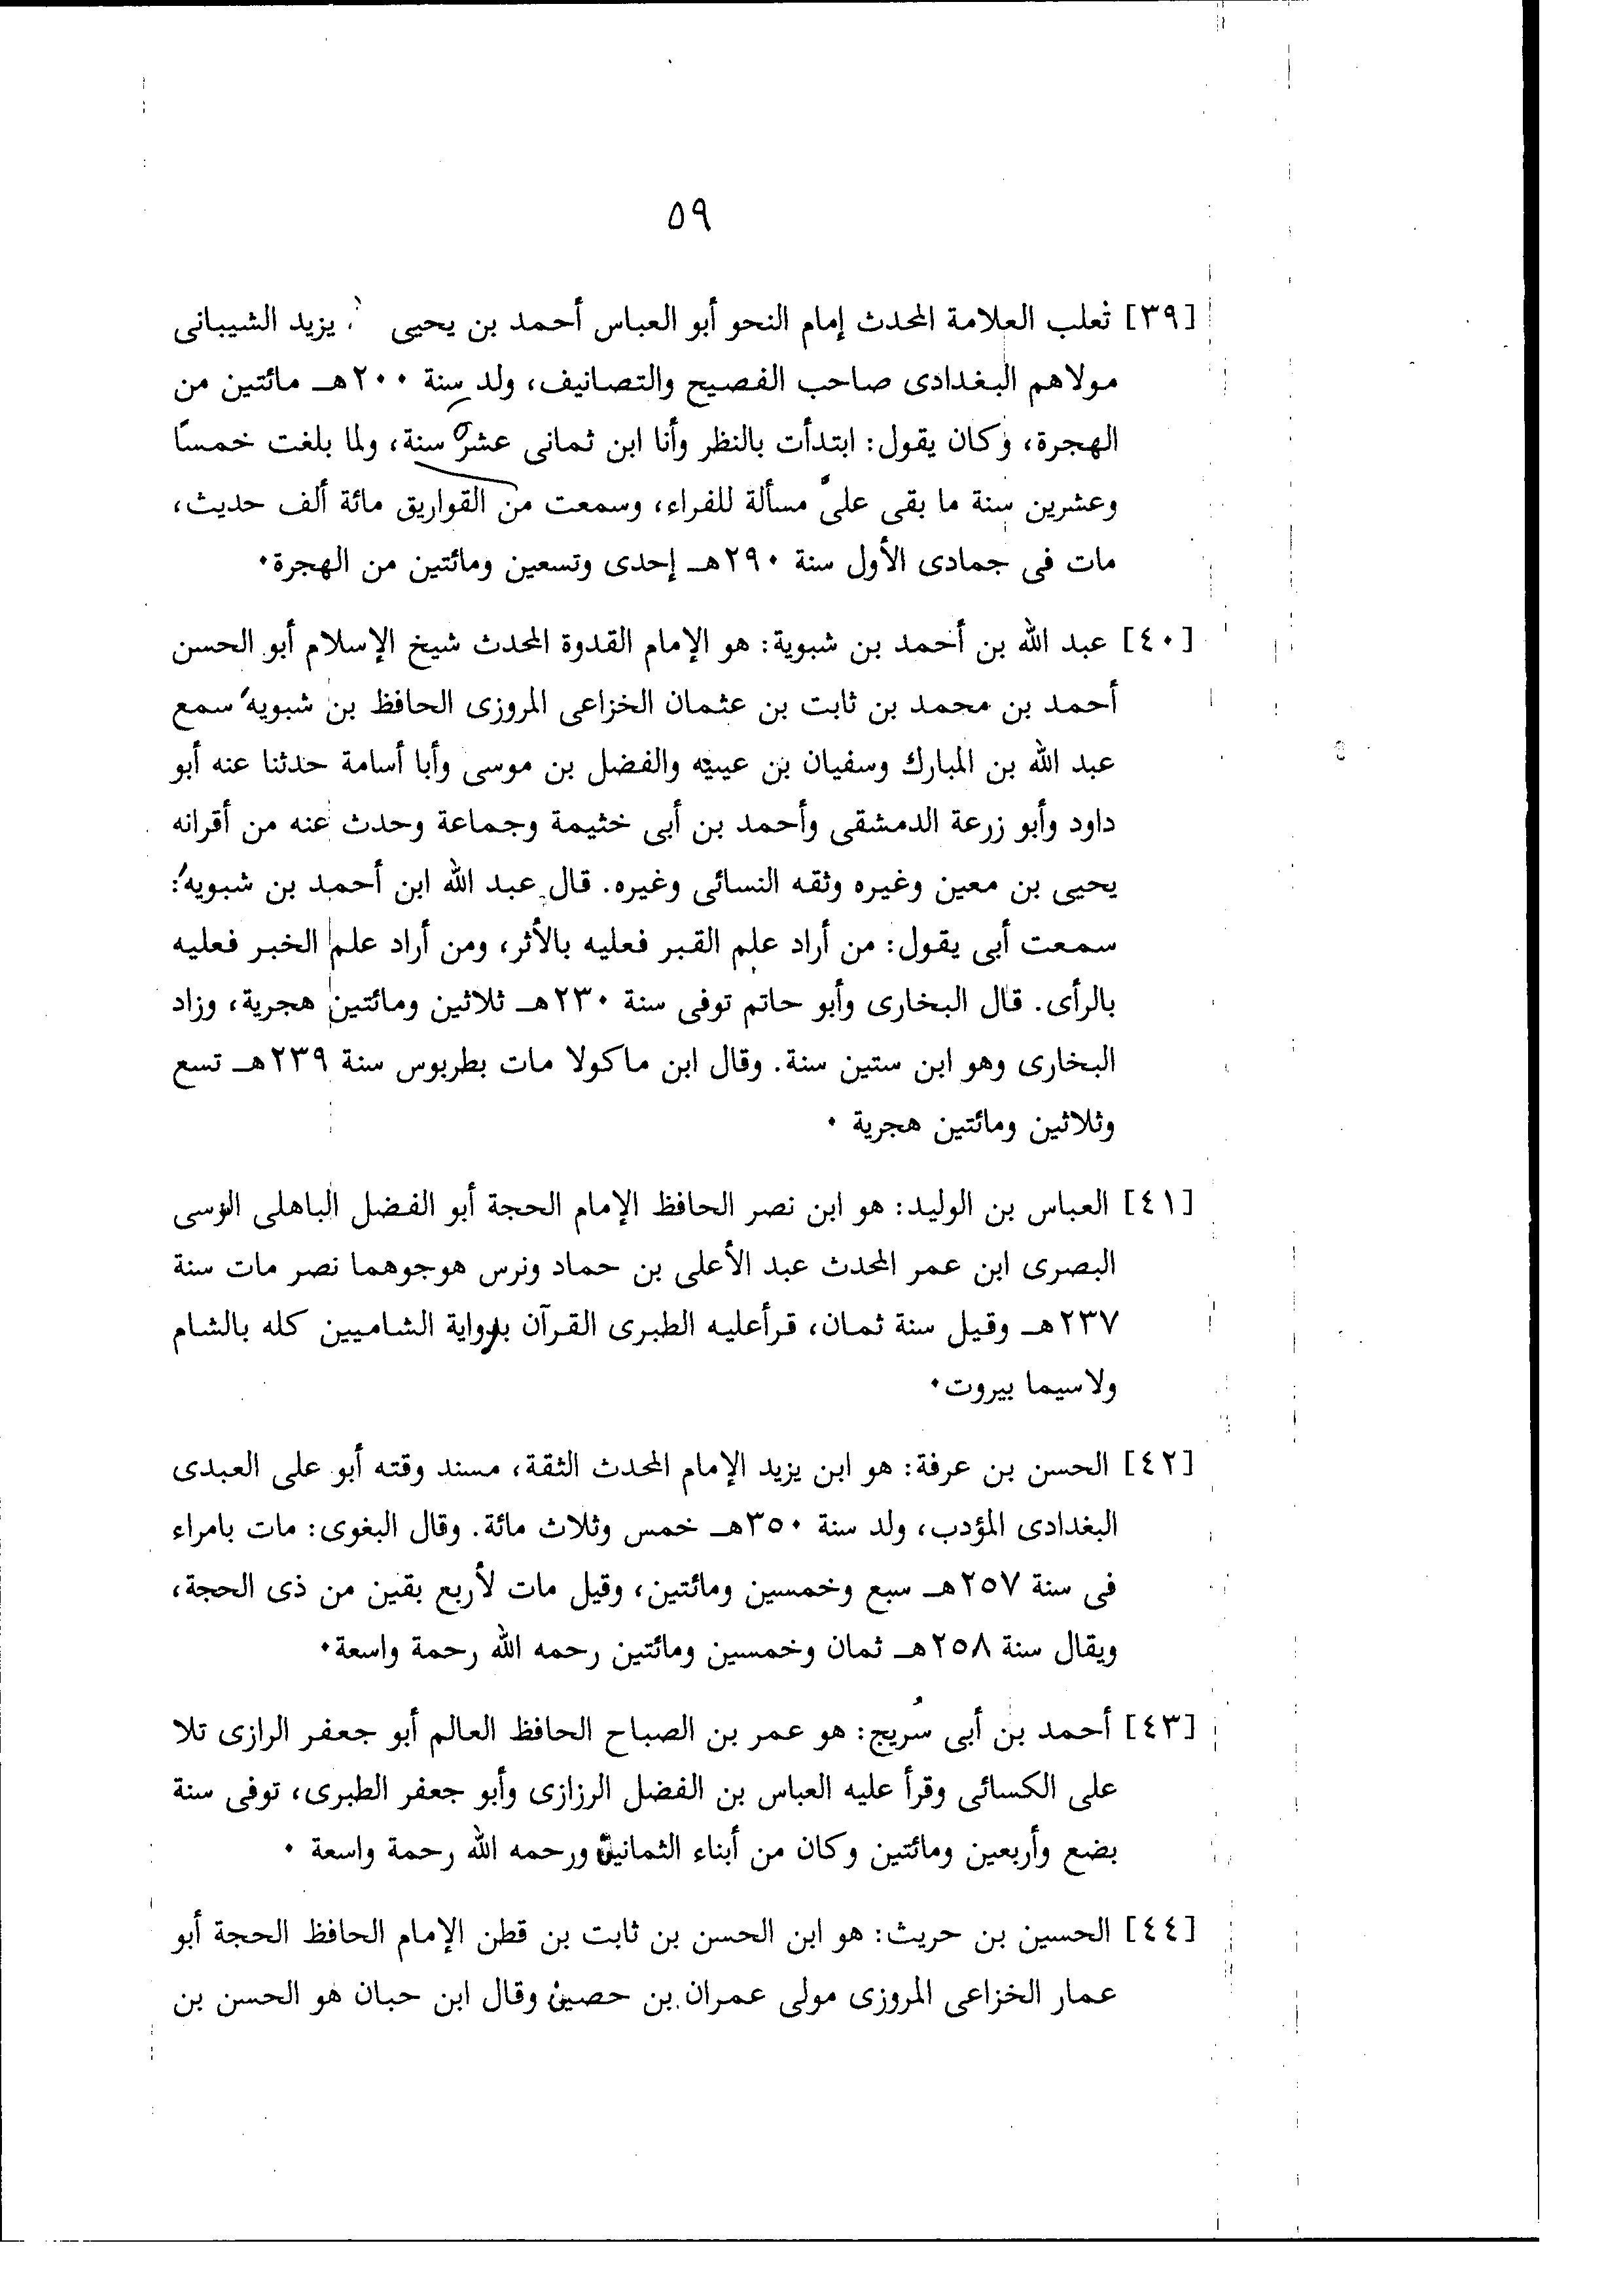 ٥٩
[٣٩] ثعلب العلامة المحدث إمام النحو أبو العباس أحمد بن يحيى يزيد الشيبانى
مولاهم البغدادى صاحب الفصيح والتصانيف، ولد سنة ٢٠٠هـ مائتين من
الهجرة، وكان يقول: ابتدأت بالنظر وأنا ابن ثمانى عشرة سنة، ولما بلغت خمسًا
وعشرين سنة ما بقى علىّ مسألة للفراء، وسمعت من القواريق مائة ألف حديث،
مات فى جمادى الأول سنة ٢٩٠هـ إحدى وتسعين ومائتين من الهجرة٠
[٤٠] عبد الله بن أحمد بن شبوية: هو الإمام القدوة المحدث شيخ الإسلام أبو الحسن
أحمد بن محمد بن ثابت بن عثمان الخزاعى المروزى الحافظ بن شبويه سمع
عبد الله بن المبارك وسفيان بن عيينه والفضل بن موسى وأبا أسامة حدثنا عنه أبو
داود وأبو زرعة الدمشقى وأحمد بن أبى خثيمة وجماعة وحدث عنه من أقرانه
يحيى بن معين وغيره وثقه النسائى وغيره. قال عبد الله ابن أحمد بن شبويه:
سمعت أبى يقول: من أراد علم القبر فعليه بالأثر، ومن أراد علم الخبر فعليه
بالرأى. قال البخارى وأبو حاتم توفى سنة ٢٣٠هـ ثلاثين ومائتين هجرية، وزاد
البخارى وهو ابن ستين سنة. وقال ابن ماكولا مات بطربوس سنة ٢٣٩هـ تسع
وثلاثين ومائتين هجرية ٠
[٤١] العباس بن الوليد: هو ابن نصر الحافظ الإمام الحجة أبو الفضل الباهلى
البصرى ابن عمر المحدث عبد الأعلى بن حماد ونرس هوجوهما نصر مات سنة
٢٣٧هـ وقيل سنة ثمان، قرأعليه الطبرى القرآن برواية الشاميين كله بالشام
ولاسيما بيروت٠
[٤٢] الحسن بن عرفة: هو ابن يزيد الإمام المحدث الثقة، مسند وقته أبو على العبدى
البغدادى المؤدب، ولد سنة ٣٥٠هـ خمس وثلاث مائة. وقال البغوى: مات بامراء
فى سنة ٢٥٧هـ سبع وخمسين ومائتين، وقيل مات لأربع بقين من ذى الحجة،
ويقال سنة ٢٥٨هـ ثمان وخمسين ومائتين رحمه الله رحمة واسعة٠
[٤٣] أحمد بن أبى سُريج: هو عمر بن الصباح الحافظ العالم أبو جعفر الرازى تلا
على الكسائى وقرأ عليه العباس بن الفضل الرزازى وأبو جعفر الطبرى، توفى سنة
بضع وأربعين ومائتين وكان من أبناء الثمانين ورحمه الله رحمة واسعة ٠
[٤٤] الحسين بن حريث: هو ابن الحسن بن ثابت بن قطن الإمام الحافظ الحجة أبو
عمار الخزاعى المروزى مولى عمران بن حصين وقال ابن حبان هو الحسن بن